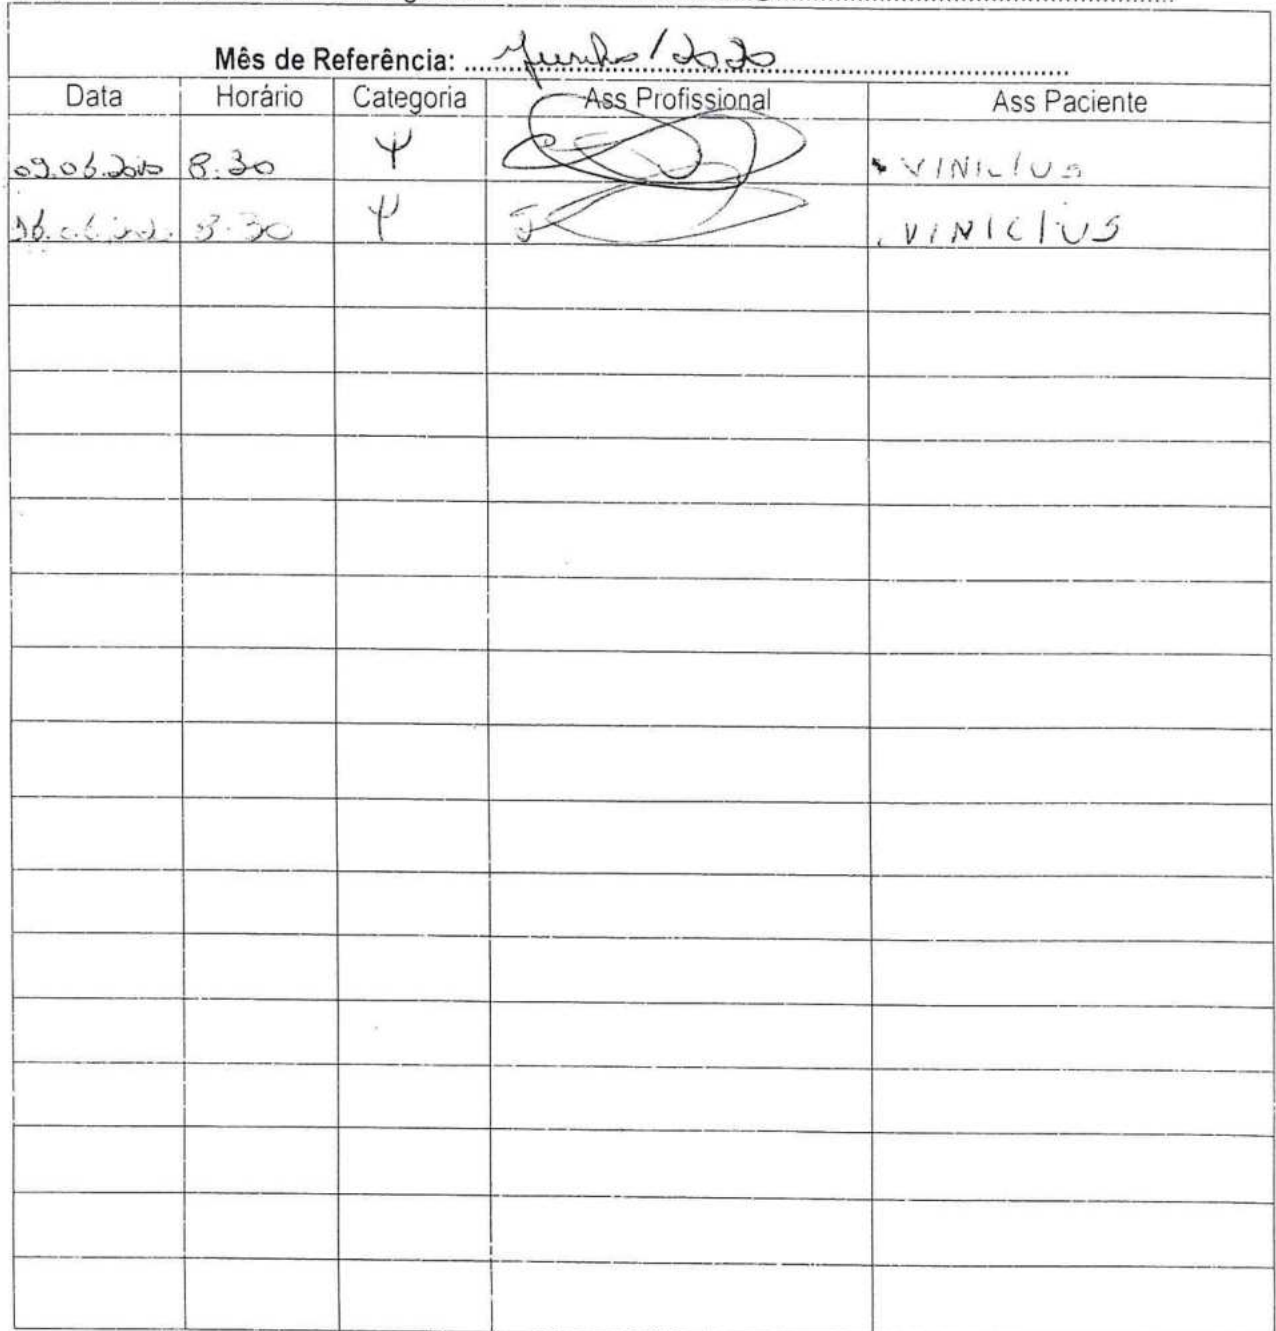 Mês de Referência: Junho/2020
Data Horário Categoria Ass Profissional Ass Paciente
09.06.2020 8:30 Ψ VINICIUS
16.06.202. 8:30 Ψ VINICIUS